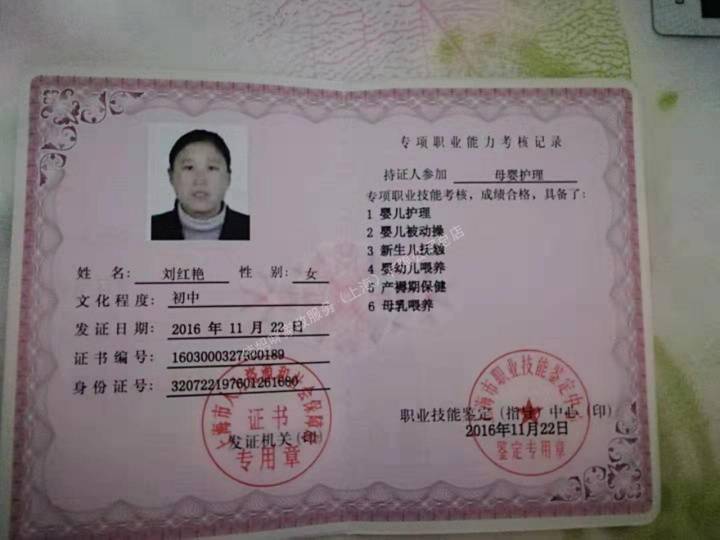 姓 名: 刘红艳 性 别: 女
文化程度: 初中
发证日期: 2016 年 11 月 22 日
证书编号: 1603000327300189
身份证号: 320722197601261680
证书
发证机关(印)
专用章
专项职业能力考核记录
持证人参加 母婴护理
专项职业技能考核,成绩合格,具备了:
1 婴儿护理
2 婴儿被动操
3 新生儿抚触
4 婴幼儿喂养
5 产褥期保健
6 母乳喂养
海市职业技能鉴定中心
职业技能鉴定(指导)中心(印)
2016年11月22日
鉴定专用章